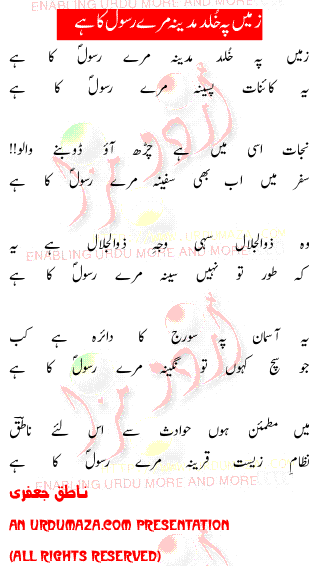 زمیں پہ خُلد مدینہ مرے رسول کا ہے
زمیں پہ خُلد مدینہ مرے رسولؐ کا ہے
یہ کائنات پسینہ مرے رسولؐ کا ہے
نجات اسی میں ہے چڑھ آؤ ڈوبنے والو!!
سفر میں اب بھی سفینہ مرے رسولؐ کا ہے
وہ ذوالجلال سہی وجہِ ذوالجلال ہے یہ
کہ طور تو نہیں سینہ مرے رسولؐ کا ہے
یہ آسمان پہ سورج کا دائرہ ہے کب
جو سچ کہوں تو نگینہ مرے رسولؐ کا ہے
میں مطمئن ہوں حوادث سے اس لئے ناطقؔ
نظامِ زیست قرینہ مرے رسولؐ کا ہے
ناطق جعفری
AN URDUMAZA.COM PRESENTATION
(ALL RIGHTS RESERVED)
ENABLING URDU MORE AND MORE
ENABLING URDU MORE AND MORE
ENABLING URDU MORE AND MORE